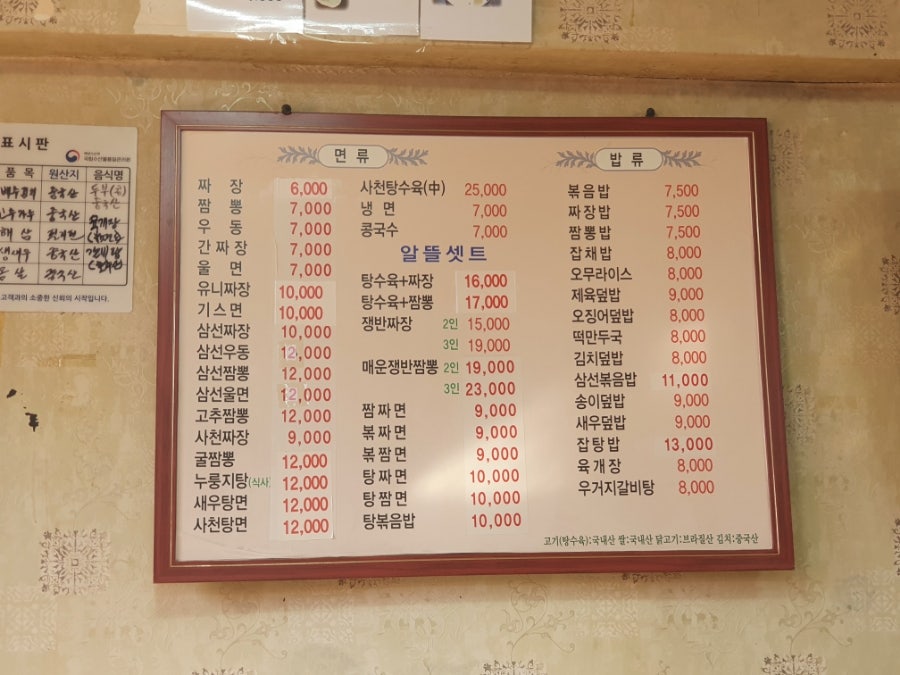 표시판
국립수산물품질관리원
품목 원산지 음식명
중국산
중국산
중국산
고객과의 소중한 신뢰의 시작입니다.
면류
짜장 6,000
짬뽕 7,000
우동 7,000
간짜장 7,000
울면 7,000
유니짜장 10,000
기스면 10,000
삼선짜장 10,000
삼선우동 12,000
삼선짬뽕 12,000
삼선울면 12,000
고추짬뽕 12,000
사천짜장 9,000
굴짬뽕 12,000
누룽지탕(식사) 12,000
새우탕면 12,000
사천탕면 12,000
사천탕수육(中) 25,000
냉면 7,000
콩국수 7,000
알뜰셋트
탕수육+짜장 16,000
탕수육+짬뽕 17,000
쟁반짜장 2인 15,000
3인 19,000
매운쟁반짬뽕 2인 19,000
3인 23,000
짬짜면 9,000
볶짜면 9,000
볶짬면 9,000
탕짜면 10,000
탕짬면 10,000
탕볶음밥 10,000
밥류
볶음밥 7,500
짜장밥 7,500
짬뽕밥 7,500
잡채밥 8,000
오무라이스 8,000
제육덮밥 9,000
오징어덮밥 8,000
떡만두국 8,000
김치덮밥 8,000
삼선볶음밥 11,000
송이덮밥 9,000
새우덮밥 9,000
잡탕밥 13,000
육개장 8,000
우거지갈비탕 8,000
고기(탕수육):국내산 쌀:국내산 닭고기:브라질산 김치:중국산